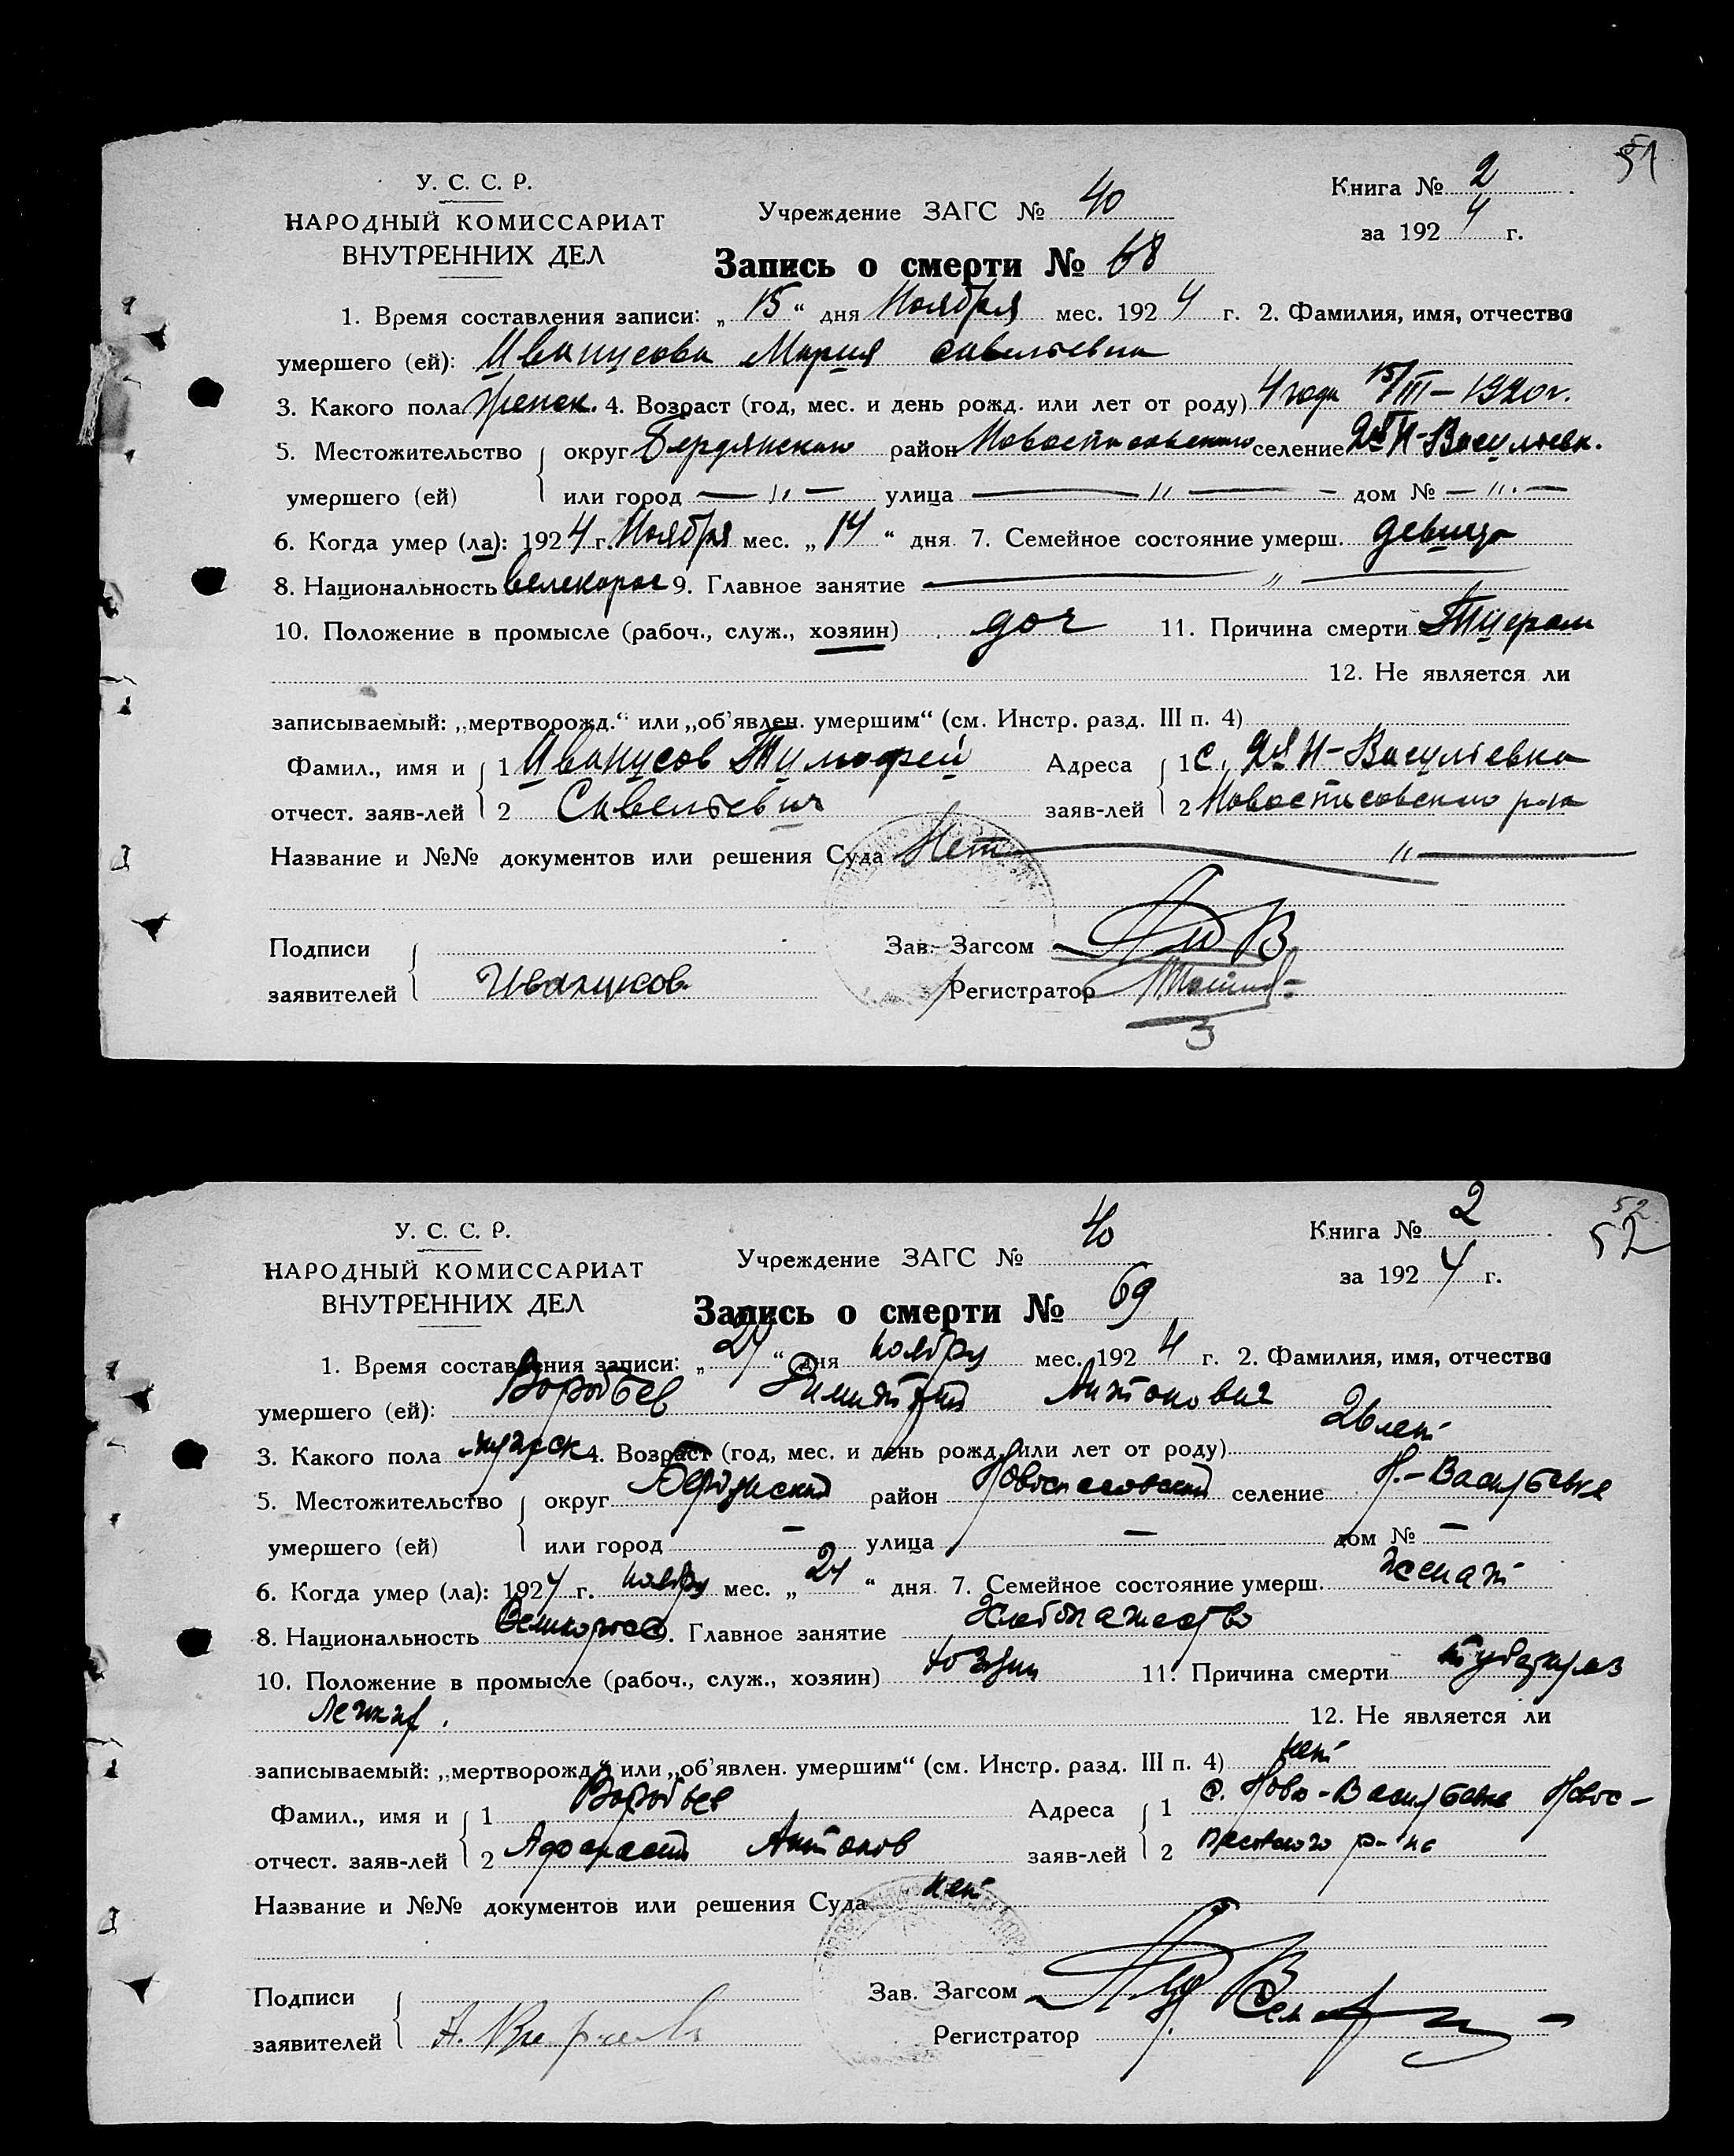 51
У. С. С. Р.
НАРОДНЫЙ КОМИССАРИАТ
ВНУТРЕННИХ ДЕЛ
Учреждение ЗАГС № 40
Книга № 2
за 1924 г.
Запись о смерти № 68
1. Время составления записи: „15“ дня Ноября мес. 1924 г. 2. Фамилия, имя, отчество
умершего (ей): Иванусова Мария Савельевна
3. Какого пола женск. 4. Возраст (год, мес. и день рожд. или лет от роду) 4 года 15/III–1920 г.
5. Местожительство округ Бердянского район селение Н-Васильевк.
умершего (ей) или город — „ — улица — „ — дом № — „ —
6. Когда умер (ла): 1924 г. Ноября мес. „14“ дня 7. Семейное состояние умерш. девица
8. Национальность великорос 9. Главное занятие — „ —
10. Положение в промысле (рабоч., служ., хозяин) доч 11. Причина смерти
12. Не является ли
записываемый: „мертворожд.“ или „об’явлен. умершим“ (см. Инстр. разд. III п. 4)
Фамил., имя и 1 Иванусов Тимофей Адреса 1 с. Н-Васильевка
отчест. заяв-лей 2 Савельевич заяв-лей 2 р-на
Название и №№ документов или решения Суда Нет — „ —
Подписи Зав. Загсом
заявителей Иванусов Регистратор
3
52
52
У. С. С. Р.
НАРОДНЫЙ КОМИССАРИАТ
ВНУТРЕННИХ ДЕЛ
Учреждение ЗАГС № 40
Книга № 2
за 1924 г.
Запись о смерти № 69
1. Время составления записи: „24“ дня ноября мес. 1924 г. 2. Фамилия, имя, отчество
умершего (ей): Воробьев Димитрий Антонович
3. Какого пола мужск 4. Возраст (год, мес. и день рожд. или лет от роду) 26 лет
5. Местожительство округ Бердянский район Новоспасовский селение Н.-Васильевка
умершего (ей) или город — улица — дом № —
6. Когда умер (ла): 1924 г. ноября мес. „24“ дня 7. Семейное состояние умерш. женат
8. Национальность Великоросс 9. Главное занятие Хлебопашество
10. Положение в промысле (рабоч., служ., хозяин) хозяин 11. Причина смерти туберкулез
легких. 12. Не является ли
записываемый: „мертворожд.“ или „об’явлен. умершим“ (см. Инстр. разд. III п. 4) нет
Фамил., имя и 1 Воробьев Адреса 1 с. Ново-Васильевка Новос-
отчест. заяв-лей 2 Антонов заяв-лей 2 пасовского р-на
Название и №№ документов или решения Суда нет
Подписи Зав. Загсом
заявителей Регистратор